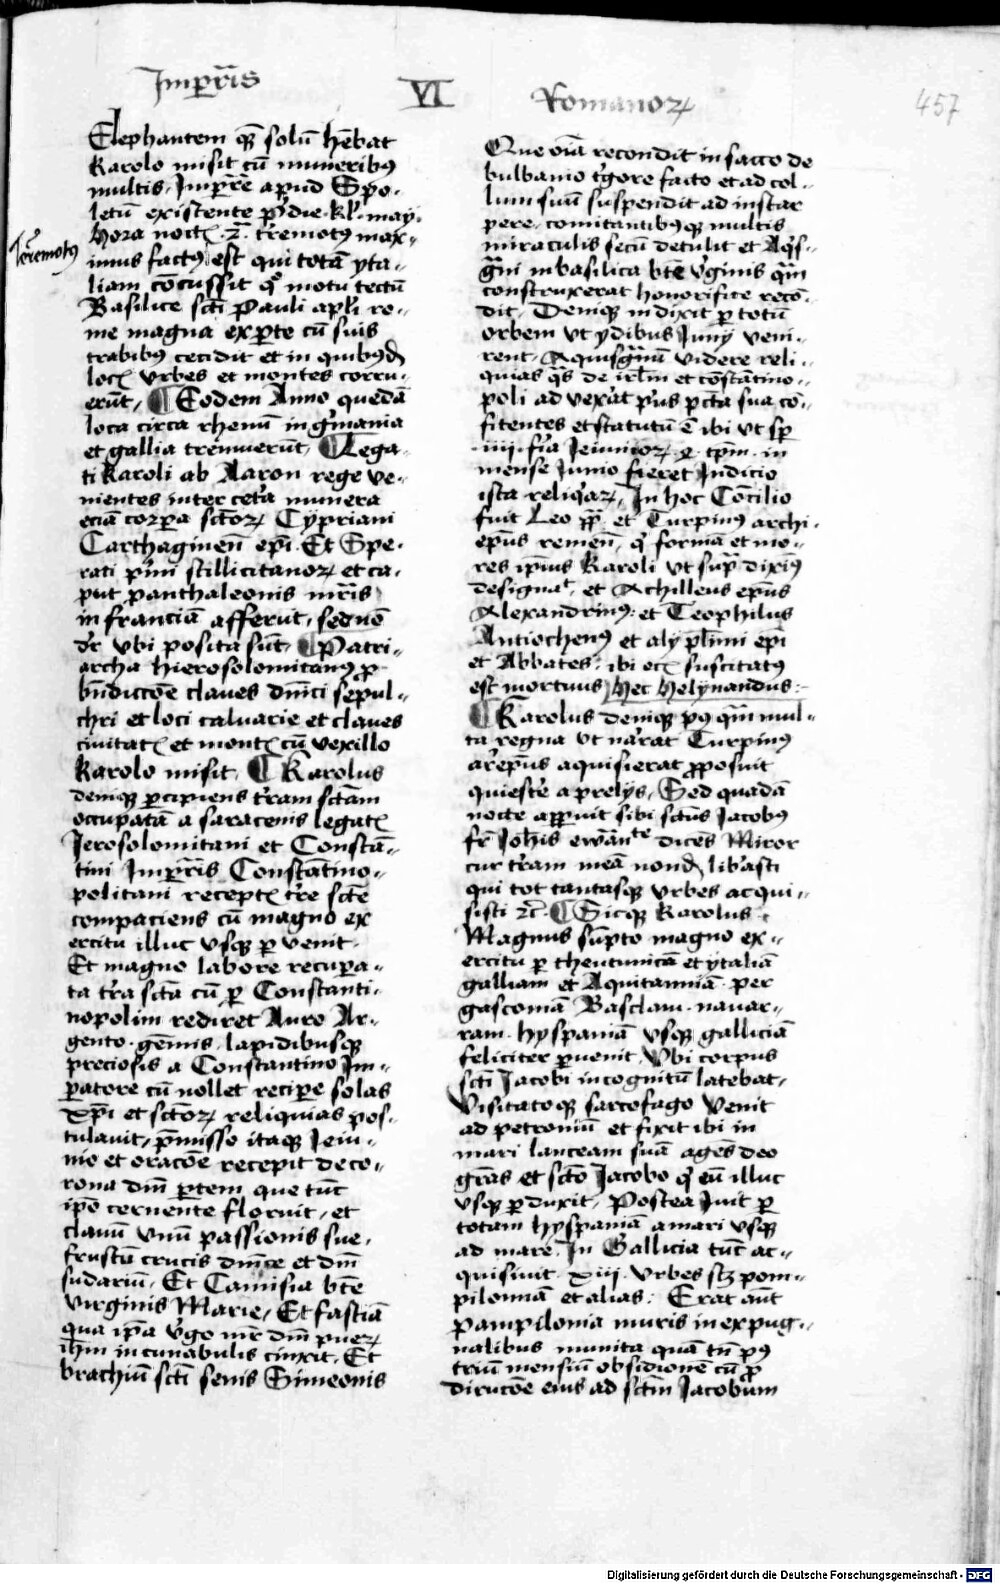 Imp̄r̄is VI Romanoꝝ 457
Elephantem qᷓ solū hēbat
Karolo misit cū muneribꝰ
multis, Imp̄re apud Spo-
letū existente p̄die kl̄ maij
hora noctꝭ 2ᷓ. t̄remotꝰ max-
Teremotꝰ
imus factꝰ est qui totā yta-
liam cōcussit qͦ motu tectū
Basilice sct̄i Pauli apl̄i ro-
me magna ex parte cū suis
trabibꝰ cecidit et in quibꝰdā
locꝭ Vrbes et montes corru-
erūt, ¶ Eodem Anno quedā
loca circa rhenū in ḡmania
et gallia tremuerūt, ¶ Lega-
ti Karoli ab Aaron rege ve-
nientes inter cet̄a munera
eciā corpora sct̄oꝝ Cypriani
Carthaginen̄ ep̄i. Et Spe-
rati p̄mi stillicitanoꝝ et ca-
put panthaleonis mr̄is
in franciā afferūt, sed nō
dr̄ vbi posita sūt, ¶ Patri-
archa hierosolomitanꝰ ꝓ
bn̄diccōe claves dm̄ici sepul-
chri et loci calvarie et claves
civitatꝭ et montꝭ cū vexillo
Karolo misit, ¶ Karolus
deniqꝫ ꝑcipiens t̄ram sctām
occupatā a saracenis legatꝭ
Jerosolomitani et Constā-
tini Imp̄r̄is Constātino-
politani receptꝭ t̄re scte̅
compaciens cū magno ex
ercitu illuc vsqꝫ ꝑ venit.
Et magno labore recupera-
ta t̄ra sctā cū ꝑ Constanti-
nopolim rediret Auro Ar-
gento gēmis lapidibusqꝫ
preciosis a Constantino Im-
peratore cū nollet recipe solas
xp̄i et sct̄oꝝ reliquias pos-
tulavit, p̄misso itaqꝫ Jeiu-
nio et oracōe recepit de co-
rona dn̄i ꝑtem que tūc
ip̄o cernente floruit, et
clavū vnū passionis sue,
frustū crucis dm̄ice et dn̄i
sudariū, Et Camisia bt̄e
virginis Marie, Et fasciā
qua ip̄a v̄go mr̄ dn̄i pueꝝ
ih̄m in cunabulis cinxit. Et
brachiū sct̄i senis Simeonis
Que oīa recondit in sacco de
bulbanio t̄gore facto et ad col-
lum suū suspendit ad instar
pere, comitantibꝰqꝫ multis
miraculis secū detulit et Aqͥs-
gᷓni in basilica bt̄e v̄ginis qᷓm
construxerat honorifice recō-
dit, Deniqꝫ indixit ꝑ totū
orbem vt ydibus Junij veni-
rent, Aquisgᷓnū videre reli-
quias qᷓs de irl̄m et cōstātino-
poli ad vexat pͥus pctā sua cō-
fitentes et statutū ē ibi vt sp̄
iiij. fr̄ia Jeiunioꝝ 4. tp̄m. in
mense Junio fieret Indicio
ista reliqͥaꝝ, In hoc Cōcilio
fuit Leo pp̄ et Turpinꝰ archi-
ep̄us remen̄, qͥ formā et mo-
res ip̄ius Karoli vt supᷓ diximꝰ
designat, et Achilleus ep̄us
Alexandrinꝰ: et Teophilus
Antiochenꝰ et alij pl̄imi ep̄i
et Abbates: ibi ecꝭ suscitatꝰ
est mortuus, Hec Helynandus:
¶ Karolus deniqꝫ pꝰ qᷓm mul-
ta regna vt nar̄at Turpinꝰ
ar̄ep̄us aquisierat ꝓposuit
quiesce̅ a prelijs, Sed quadā
nocte apparuit sibi sctūs Jacobus
fr̄ Joh̄is ewāḡte dicēs Miror
cur t̄ram meā nondū libasti
qui tot tantasqꝫ vrbes acqui-
sisti ꝛc̄. ¶ Sicqꝫ Karolus
Magnus sūpto magno ex-
ercitu ꝑ theutunicā et ytaliā
galliam et Aquitanniā per
gasconiā Basclam navar-
ram hyspaniā vsqꝫ galliciā
feliciter ꝑvenit, vbi corpus
sct̄i Jacobi incognitū latebat,
Visitatoqꝫ sarcofago venit
ad petroniū et fixit ibi in
mari lanceam suā agēs deo
gr̄as et sctō Jacobo qͥ eū illuc
vsqꝫ ꝑduxit, Postea Iuit ꝑ
totam hyspaniā a mari vsqꝫ
ad mare, In Gallicia tūc ac-
quisiuit xiij. vrbes sꝫ pom-
piloniā et alias: Erat aūt
Pampilonia muris inexpug-
nabilus munita quā tn̄ pꝰ
triū mensiū obsidionē cū ꝓ
dirucōe eius ad sctm̄ Jacobum
Digitalisierung gefördert durch die Deutsche Forschungsgemeinschaft - DFG